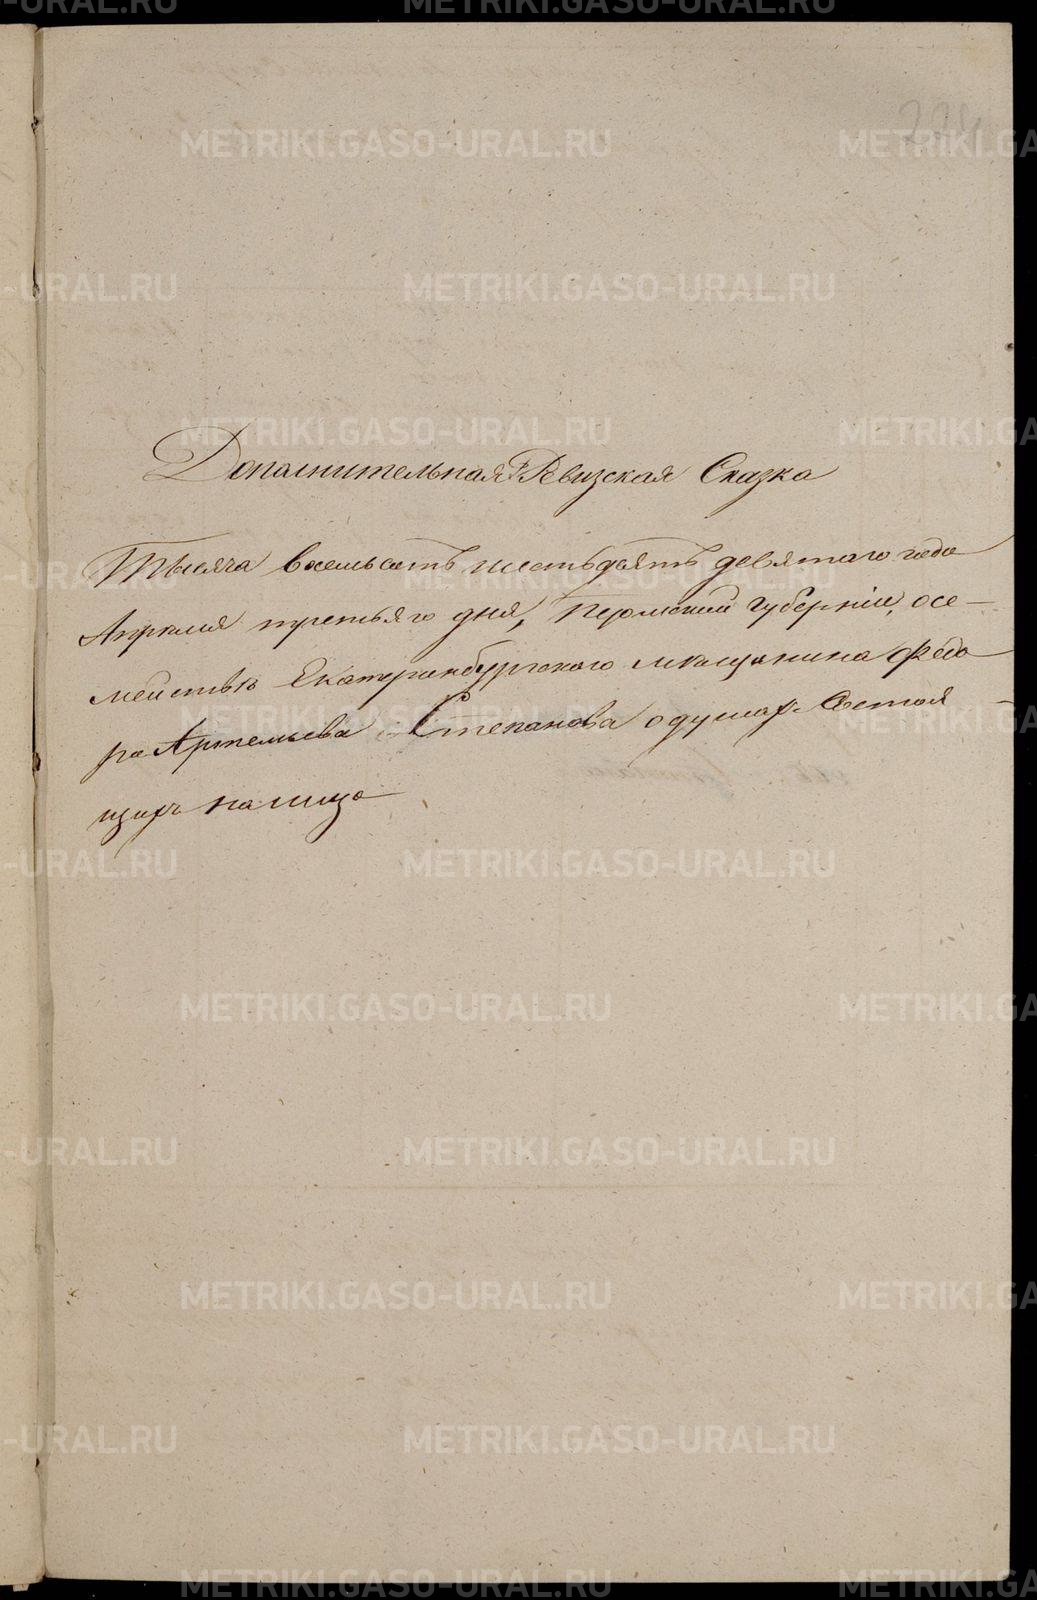 Дополнительная Ревизская Сказка
Тысяча восемьсотъ шестьдесятъ девятаго года
Апреля третьяго дня, Пермской Губерніи, осе-
мействѣ Екатеринбургскаго мещанина Федо
ра Артемьева Степанова о душах состоя-
щихъ на лицо